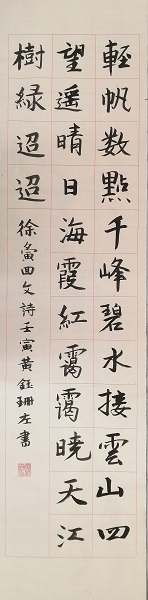 輕帆数點千峰碧水接雲山四
望遥晴日海霞紅靄靄曉天江
樹緑迢迢 徐夤回文詩壬寅黃鈺珊左書